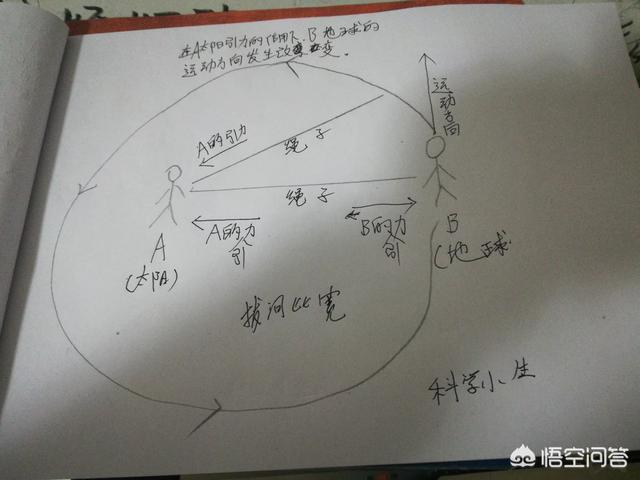 在A太阳引力的作用下、B地球的
运动方向发生改变。
运动方向
A的引力
绳子
绳子
A的引力
B的引力
A
(太阳)
B
(地球
拔河比宽
科学小生
悟空问答